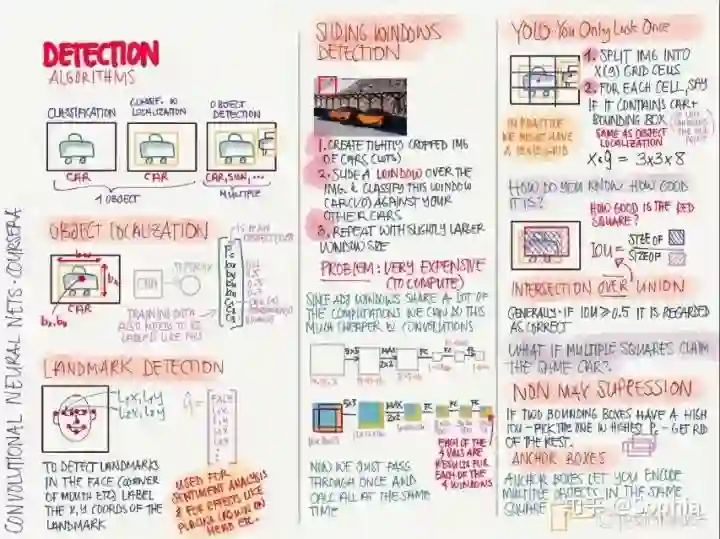 DETECTION
ALGORITHMS
CLASSIFICATION
CLASSIF. W
LOCALIZATION
OBJECT
DETECTION
CAR
CAR
CAR, SIGN, ...
1 OBJECT
MULTIPLE
CONVOLUTIONAL NEURAL NETS - COURSERA
OBJECT LOCALIZATION
CAR
TRAINING DATA
ALSO NEEDS TO BE
LABELED LIKE THIS
LANDMARK DETECTION
L1x, L1y
L2x, L2y
FACE
TO DETECT LANDMARKS
IN THE FACE (CORNER
OF MOUTH ETC) LABEL
THE X,Y COORDS OF THE
LANDMARK
USED FOR
SENTIMENT ANALYSIS
& FOR EFFECTS LIKE
PLACING CROWN ON
HEAD ETC.
SLIDING WINDOWS
DETECTION
1. CREATE TIGHTLY CROPPED IMG
OF CARS
2. SLIDE A WINDOW OVER THE
IMG. & CLASSIFY THIS WINDOW
CAR(1/0) AGAINST YOUR
OTHER CARS
3. REPEAT WITH SLIGHTLY LARGER
WINDOW SIZE
PROBLEM: VERY EXPENSIVE
(TO COMPUTE)
SINCE ADJ WINDOWS SHARE A LOT OF
THE COMPUTATIONS WE CAN DO THIS
MUCH CHEAPER W CONVOLUTIONS
5x5
MAX
2x2
FC
5x5
MAX
2x2
FC
FC
EACH OF THE
4 VALS ARE
RESULTS FOR
EACH OF THE
4 WINDOWS
NOW WE JUST PASS
THROUGH ONCE AND
CALC ALL AT THE SAME
TIME
YOLO - You Only Look Once
1. SPLIT IMG INTO
X(9) GRID CELLS
2. FOR EACH CELL, SAY
IF IT CONTAINS CAR +
BOUNDING BOX
SAME AS OBJECT
LOCALIZATION
IN PRACTICE
WE MIGHT HAVE
HOW DO YOU KNOW HOW GOOD
IT IS?
HOW GOOD IS THE RED
SQUARE?
IOU =
SIZE OF
SIZE OF
INTERSECTION OVER UNION
GENERALLY - IF IOU ≥ 0.5 IT IS REGARDED
AS CORRECT
WHAT IF MULTIPLE SQUARES CLAIM
THE SAME CAR?
NON MAX SUPRESSION
IF TWO BOUNDING BOXES HAVE A HIGH
IOU - PICK THE ONE W HIGHEST Pc - GET RID
OF THE REST.
ANCHOR BOXES
ANCHOR BOXES LET YOU ENCODE
MULTIPLE OBJECTS IN THE SAME
SQUARE
知乎 @Sophia